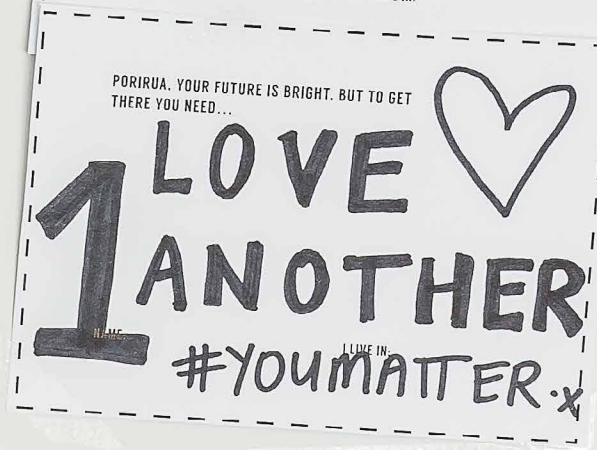 PORIRUA. YOUR FUTURE IS BRIGHT. BUT TO GET
THERE YOU NEED...
LOVE
1 ANOTHER
NAME:
I LIVE IN:
#YOUMATTER.x